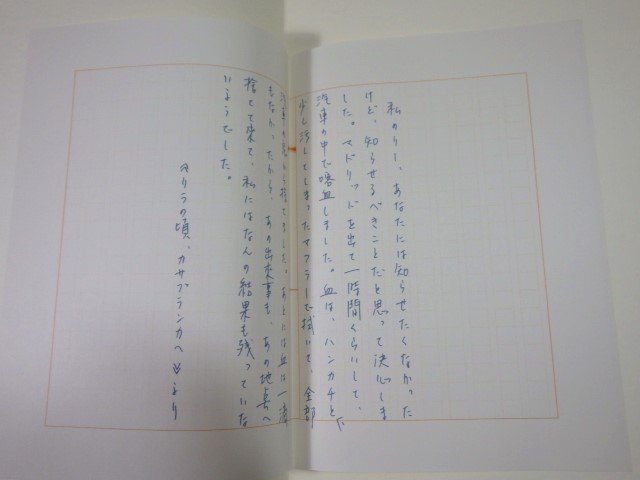 私のリー、あなたには知らせたくなかった
けど、知らせるべきことだと思って決心しま
した。マドリッドを出て一時間くらいして、
汽車の中で喀血しました。血は、ハンカチと
少し汚してしまったマフラーで拭いて、全部
汽車の窓から捨てました。あとには血は一滴
もなかったから、あの出来事も、あの地点へ
捨てて来て、私にはなんの結果も残っていな
いようでした。
の頃、カサブランカへ より